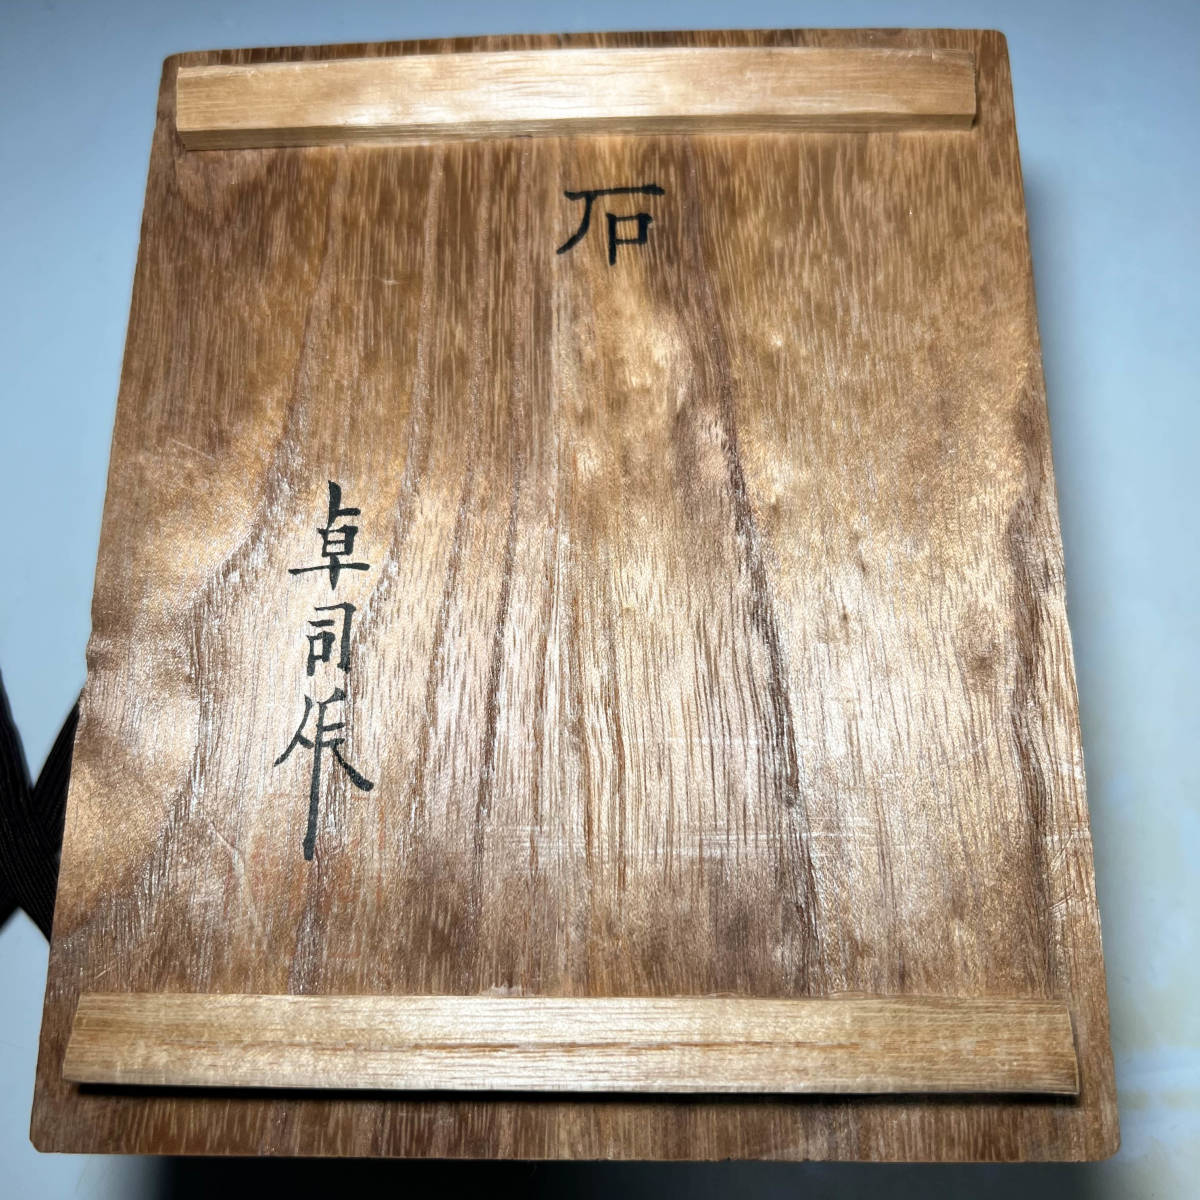 石
卓司作